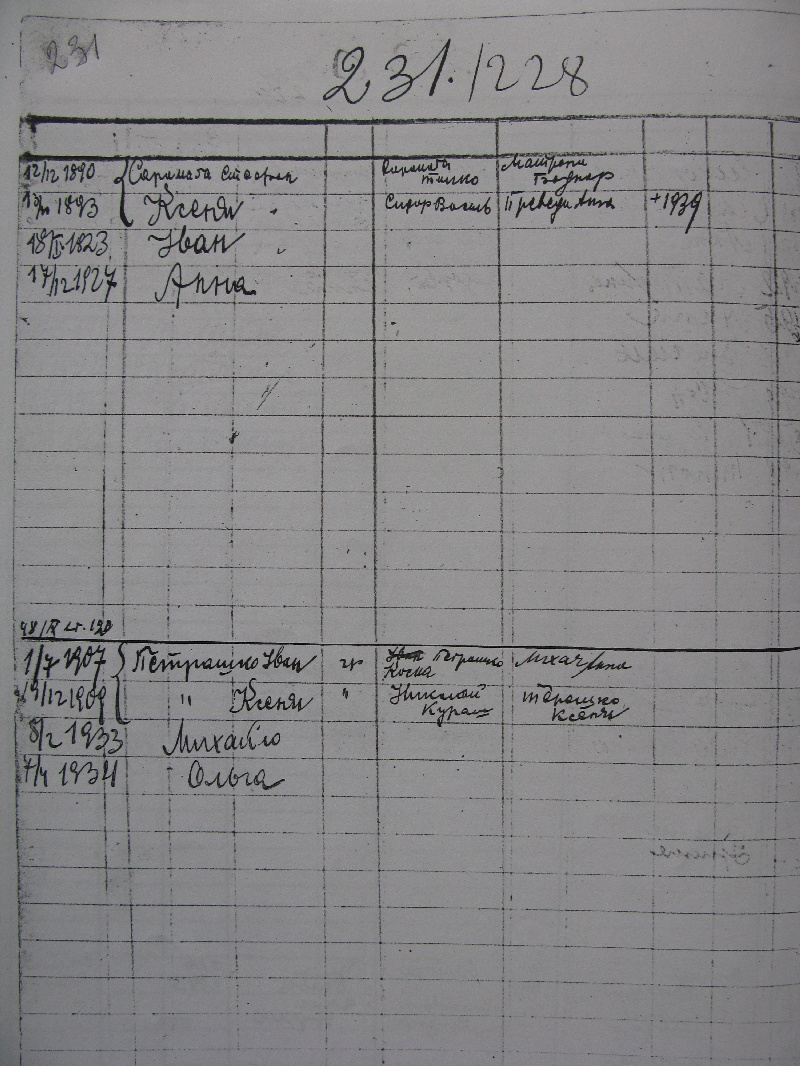 231
231./228
12/12 1890 Сарамага Стефан Сарамага Тимко Матрона Боднар
1893 Ксеня Сидор Василь Анна +1939
18/II 1923 Іван
17/12 1927 Анна
48/IX ст. 120
1/7 1907 Петрашко Іван гр Петрашко Михач Анна
Коска
19/12 1909 " Ксеня " Николай Терешко
Кураш Ксеня
8/2 1933 Михайло
7/4 1934 Ольга